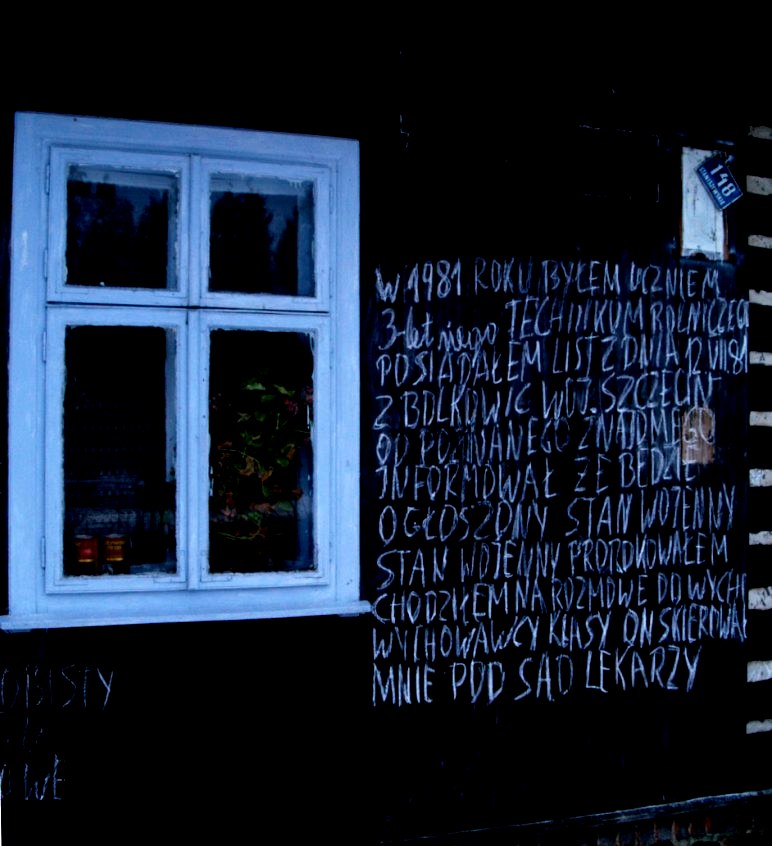 148
W 1981 ROKU BYŁEM UCZNIEM
3-letniego TECHNIKUM ROLNICZEGO
POSIADAŁEM LIST Z DNIA 12 VII 81
Z BOLKOWIC WOJ. SZCZECIN
OD POZNANEGO ZNAJOMEGO
INFORMOWAŁ ŻE BĘDZIE
OGŁOSZONY STAN WOJENNY
STAN WOJENNY PROROKOWAŁEM
CHODZIŁEM NA ROZMOWE DO WYCHO
WYCHOWAWCY KLASY ON SKIEROWAŁ
MNIE POD SĄD LEKARZY
OBISTY
OWE